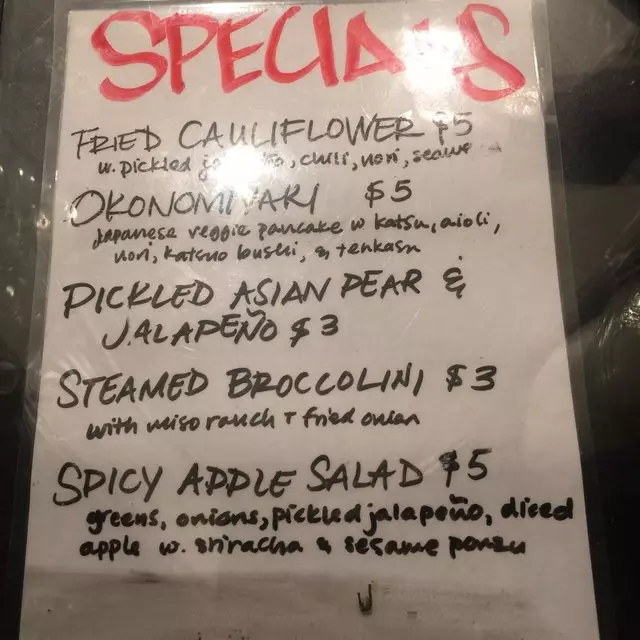 SPECIALS
FRIED CAULIFLOWER $5
w. pickled jalapeño, chili, nori,
OKONOMIYAKI $5
Japanese veggie pancake w katsu, aioli,
nori, katsuo bushi, & tenkasu
PICKLED ASIAN PEAR &
JALAPEÑO $3
STEAMED BROCCOLINI $3
with miso ranch + fried onion
SPICY APPLE SALAD $5
greens, onions, pickled jalapeño, diced
apple w. sriracha & sesame ponzu